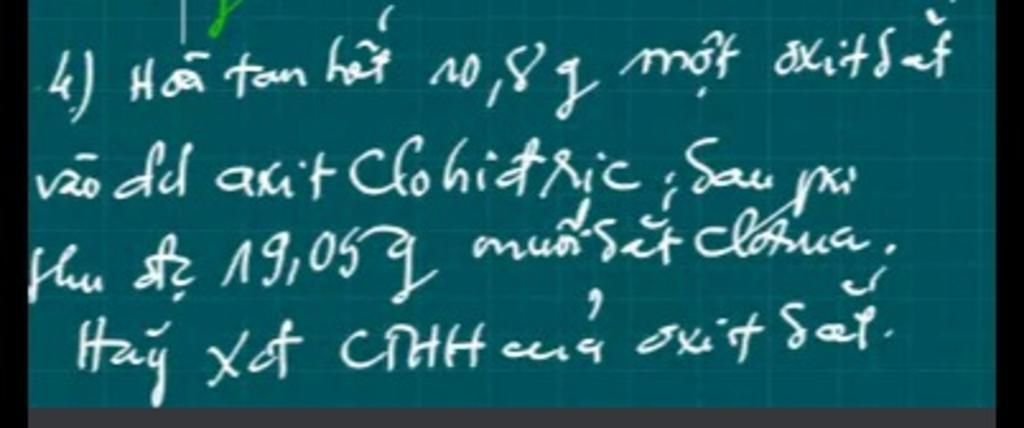 4) Hoà tan hết 10,8g một oxit sắt
vào dd axit Clohiđric, sau pư
thu đc 19,05g muối sắt clorua.
Hãy xđ CTHH của oxit sắt.